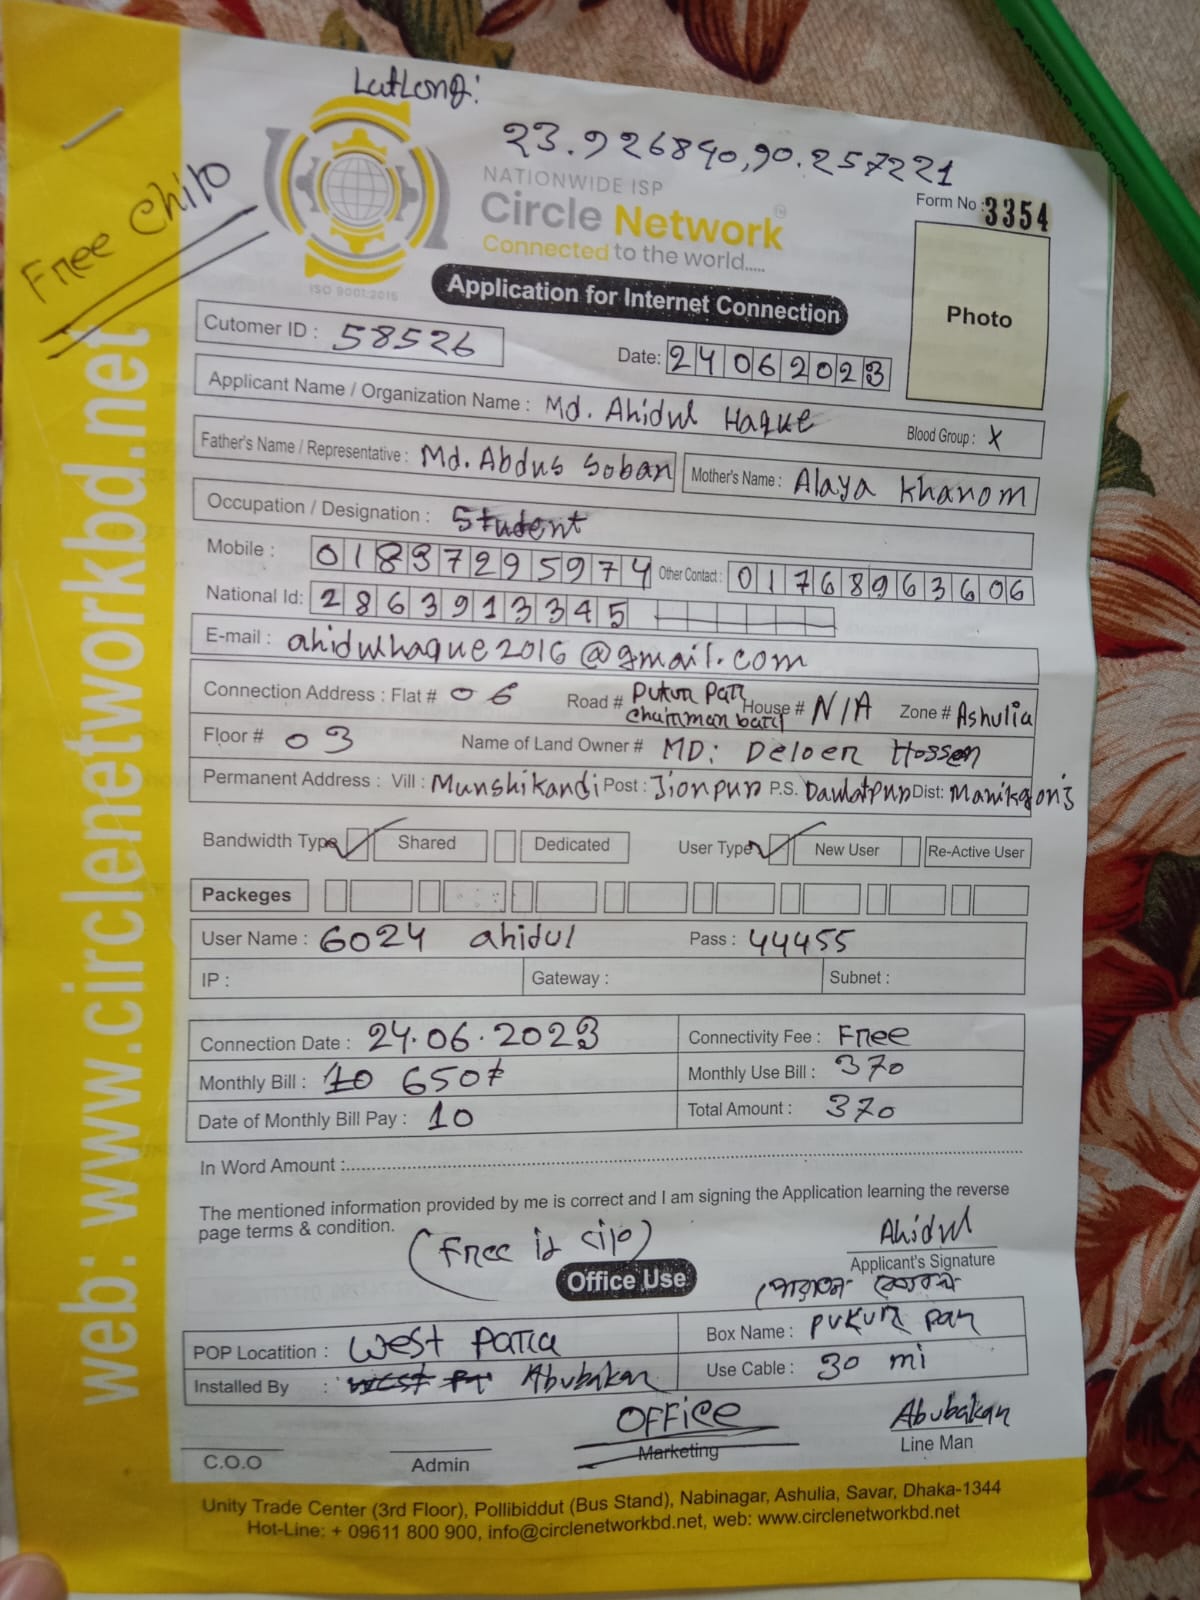 LatLong:
23.926840,90.257221
Free Chilo
NATIONWIDE ISP
Circle Network
Connected to the world.....
ISO 9001:2015
Form No : 3354
Photo
Application for Internet Connection
Cutomer ID : 58526
Date: 24062023
Applicant Name / Organization Name : Md. Ahidul Haque
Blood Group : X
Father's Name / Representative : Md. Abdus Soban
Mother's Name : Alaya Khanom
Occupation / Designation : Student
Mobile : 01837295974 Other Contact : 01768963606
National Id: 2863913345
E-mail : ahidulhaque2016@gmail.com
Connection Address : Flat # 06 Road # Pukur Parr Chairman bari House # N/A Zone # Ashulia
Floor # 03 Name of Land Owner # MD: Deloer Hossen
Permanent Address : Vill : Munshikandi Post : Jionpur P.S. Daulatpur Dist: Manikgonj
Bandwidth Type Shared Dedicated User Type New User Re-Active User
Packeges
User Name : 6024 ahidul Pass : 44455
IP : Gateway : Subnet :
Connection Date : 24.06.2023 Connectivity Fee : Free
Monthly Bill : 10 650 Monthly Use Bill : 370
Date of Monthly Bill Pay : 10 Total Amount : 370
In Word Amount :
The mentioned information provided by me is correct and I am signing the Application learning the reverse
page terms & condition.
(Free)
Ahidul
Applicant's Signature
Office Use
POP Locatition : West Para Box Name : Pukur Parr
Installed By : Abubakar Use Cable : 30 mi
OFFice
Abubakar
C.O.O Admin Marketing Line Man
Unity Trade Center (3rd Floor), Pollibiddut (Bus Stand), Nabinagar, Ashulia, Savar, Dhaka-1344
Hot-Line: + 09611 800 900, info@circlenetworkbd.net, web: www.circlenetworkbd.net
web: www.circlenetworkbd.net